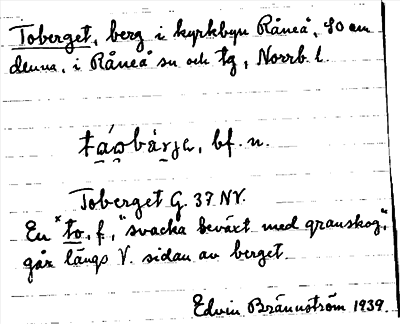 Toberget, berg i kyrkbyn Råneå, SO om
denna, i Råneå sn och tg, Norrb. l.
táobárja, bf. n.
Toberget G. 37 NV.
En "to, f., "svacka beväxt med granskog",
går längs V. sidan av berget.
Edvin Brännström 1939.